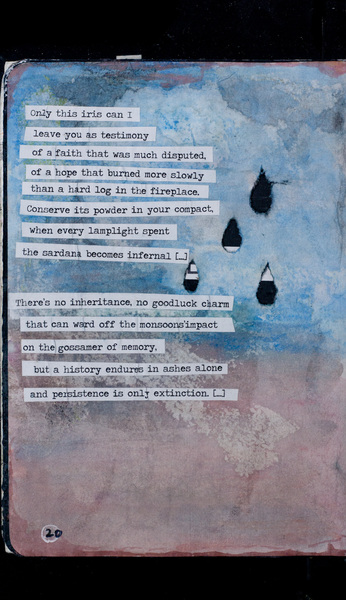 Only this iris can I
leave you as testimony
of a faith that was much disputed,
of a hope that burned more slowly
than a hard log in the fireplace.
Conserve its powder in your compact,
when every lamplight spent
the sardana becomes infernal [...]
There's no inheritance, no goodluck charm
that can ward off the monsoons'impact
on the gossamer of memory,
but a history endures in ashes alone
and persistence is only extinction. [...]
20